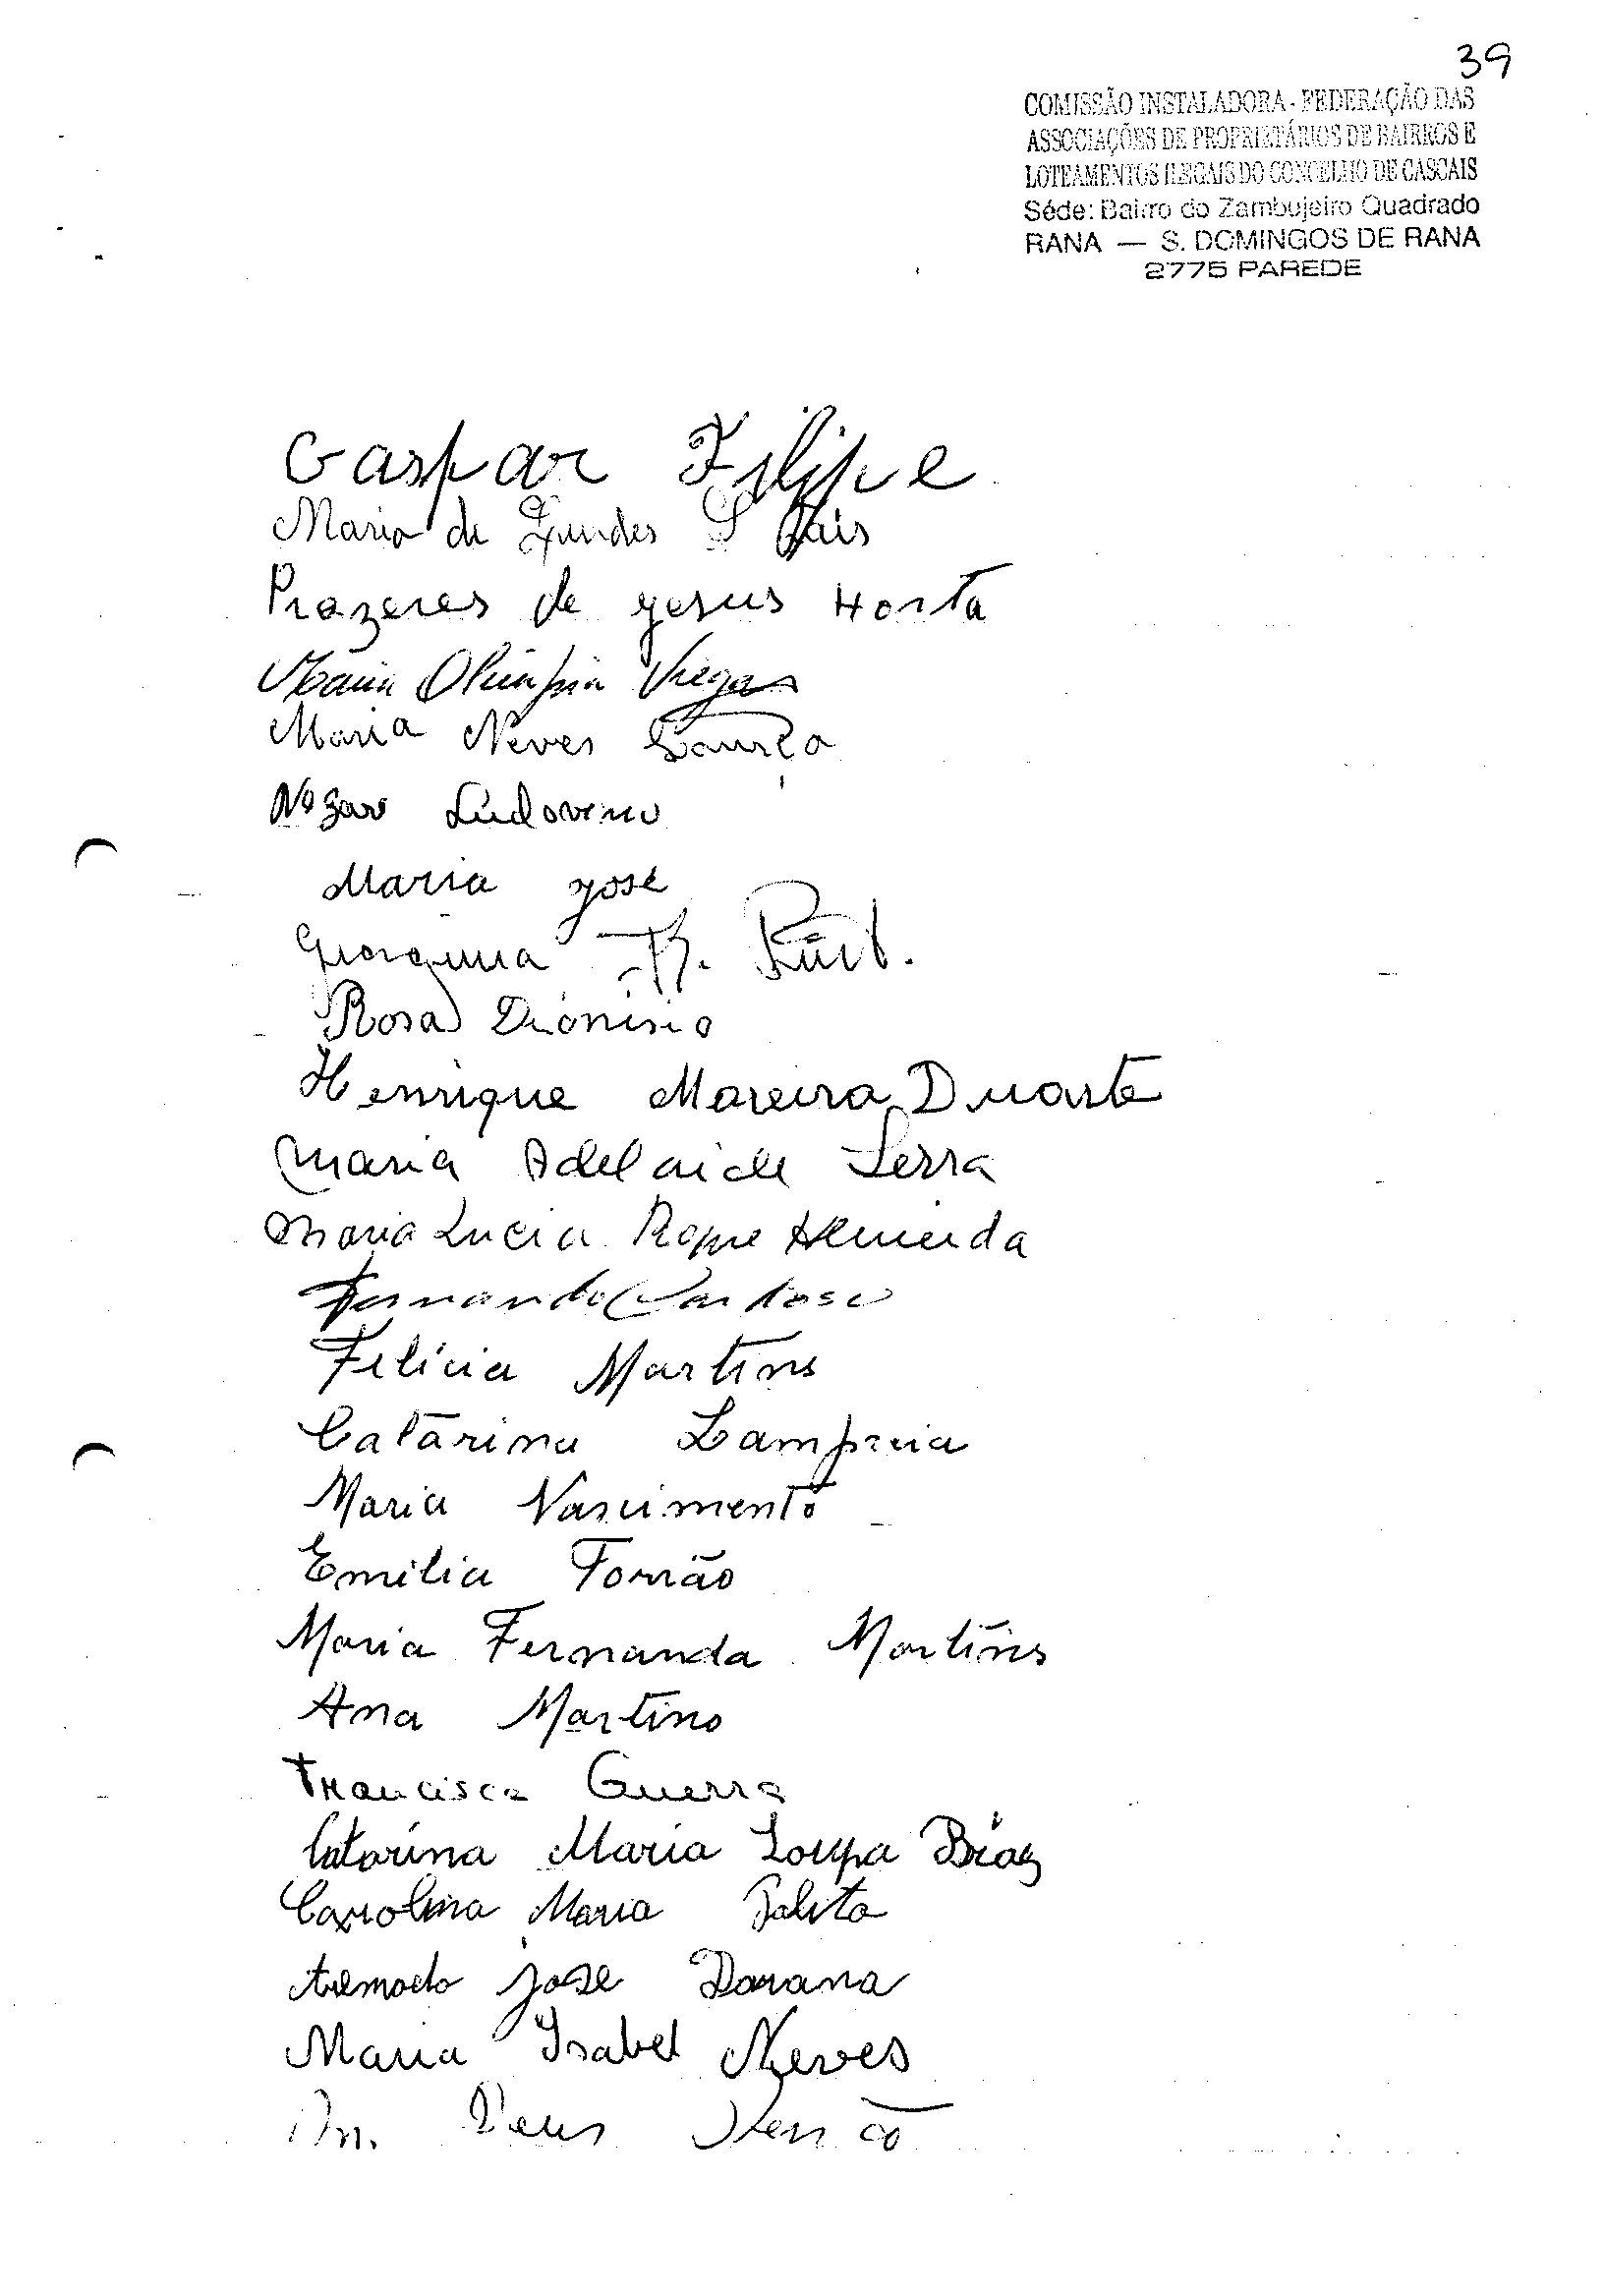 39
COMISSÃO INSTALADORA - FEDERAÇÃO DAS
ASSOCIAÇÕES DE PROPRIETÁRIOS DE BAIRROS E
LOTEAMENTOS ILEGAIS DO CONCELHO DE CASCAIS
Séde: Bairro do Zambujeiro Quadrado
RANA — S. DOMINGOS DE RANA
2775 PAREDE
Gaspar Filipe
Maria de Lurdes S Pais
Prazeres de jesus Horta
Maria Olimpia Viegas
Maria Neves
Ludovino
Maria José
R.
Rosa Dionisio
Henrique Moreira Duarte
Maria Adelaide Serra
Maria Lucia Roque Almeida
Fernando Cardoso
Felicia Martins
Catarina Lampreia
Maria Nascimento
Emilia Forrão
Maria Fernanda Martins
Ana Martins
Francisca Guerra
Catarina Maria Loupa Bráz
Carolina Maria Palita
José
Maria Isabel Neves
M.